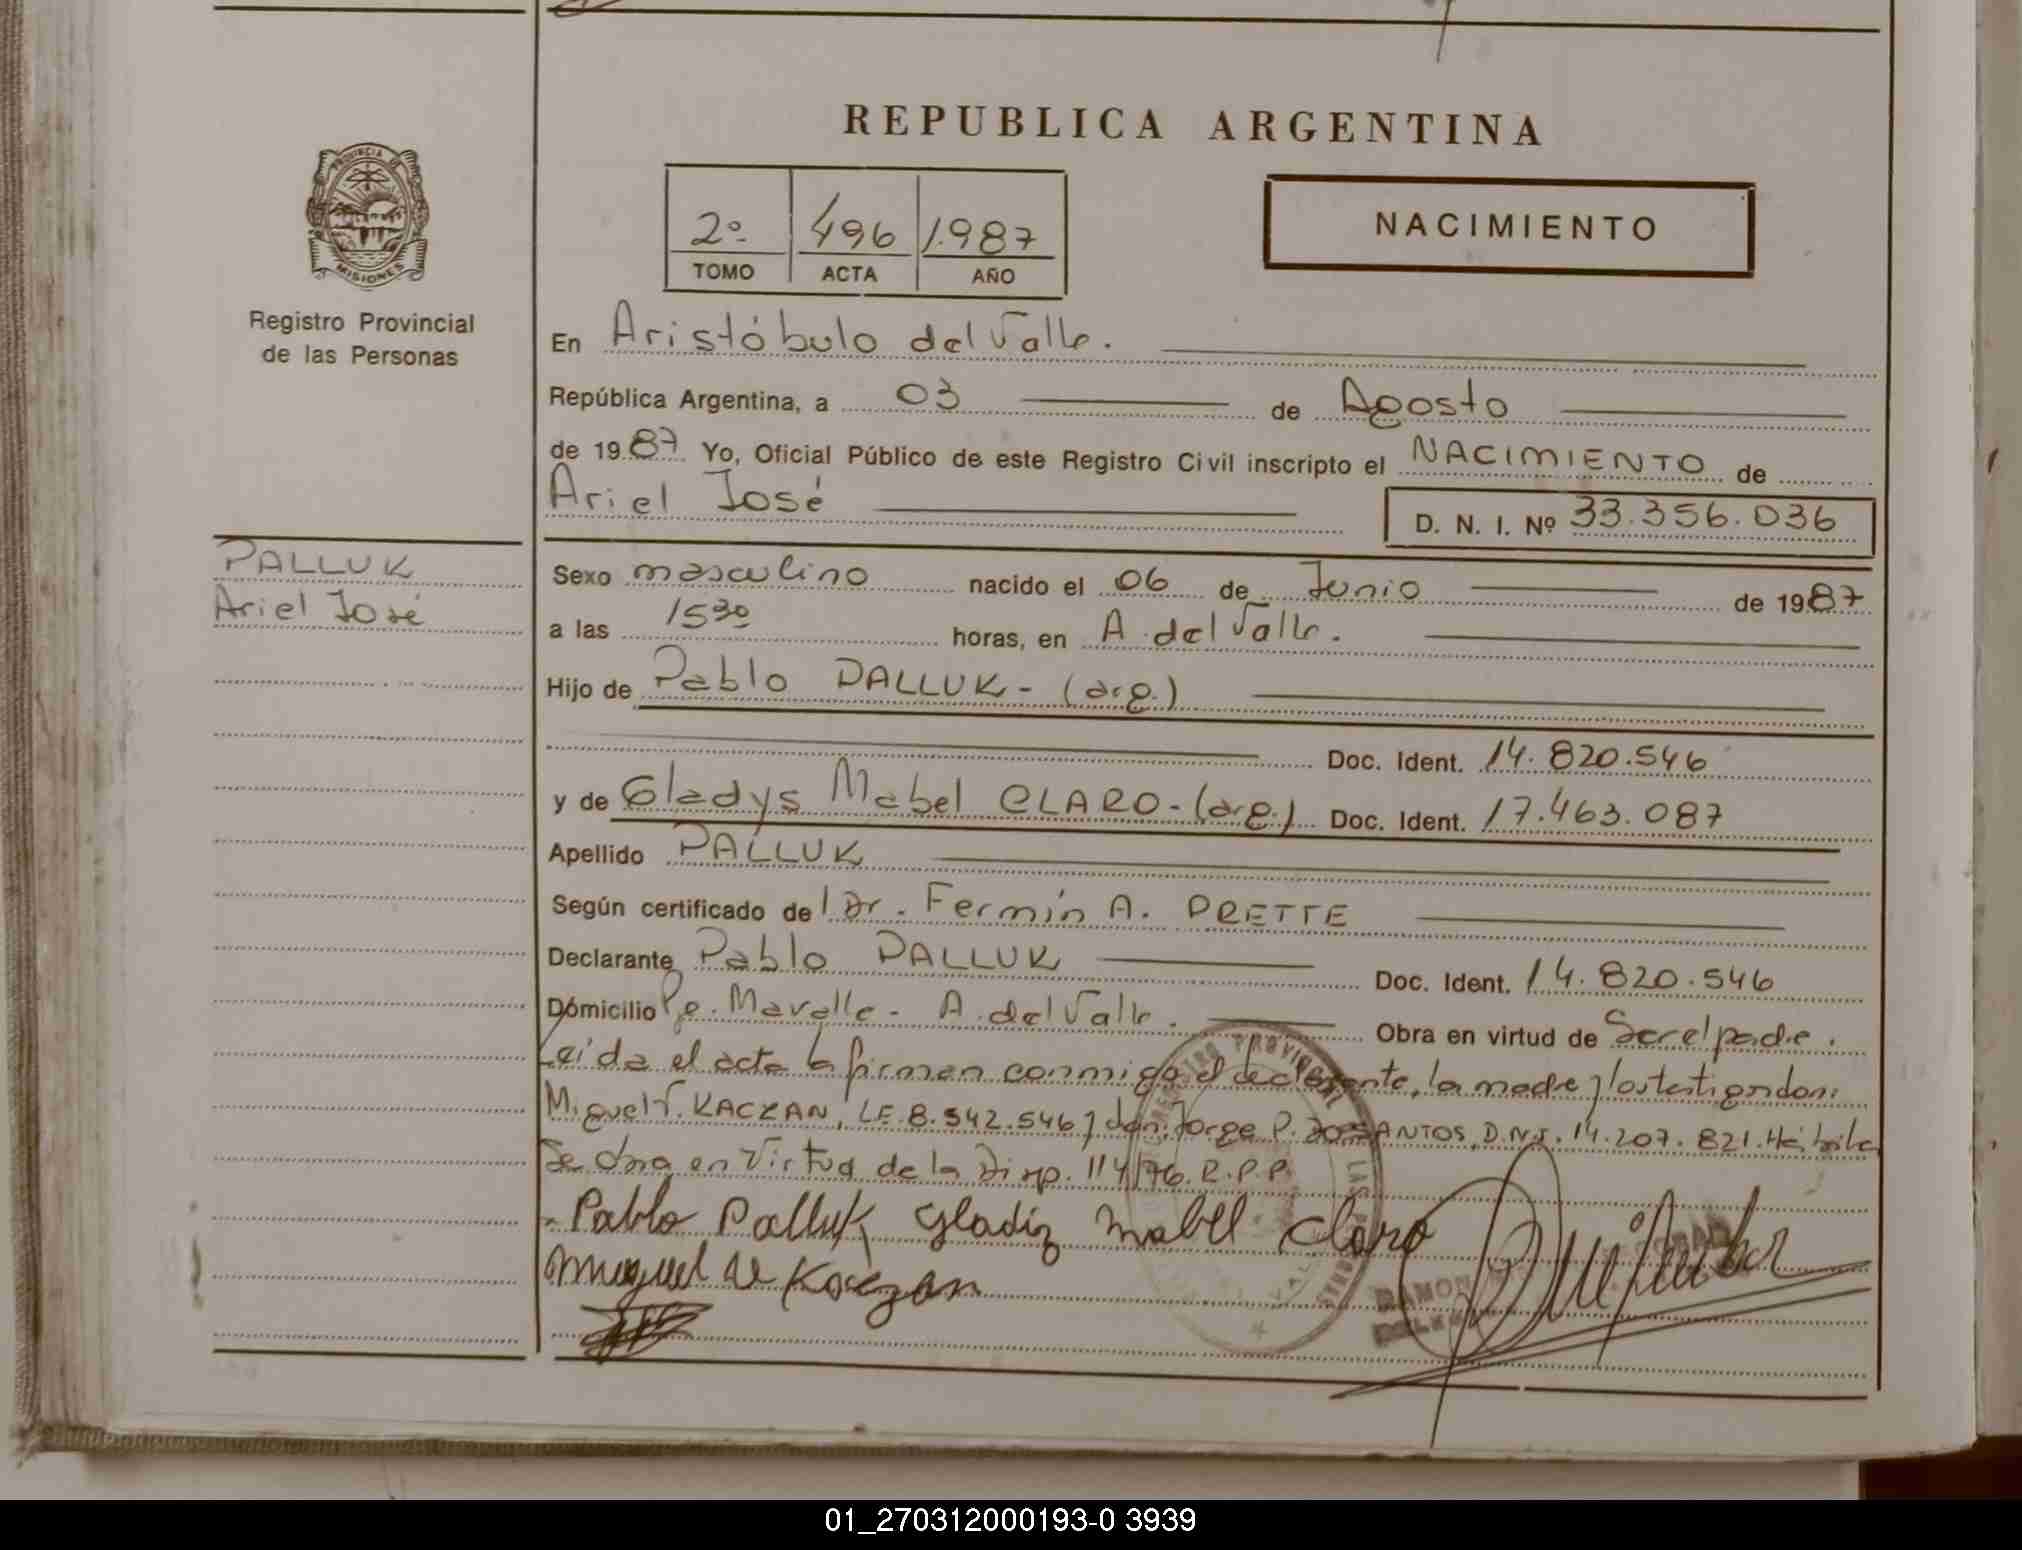 REPUBLICA ARGENTINA
PROVINCIA DE
MISIONES
Registro Provincial
de las Personas
2º 496 1.987
TOMO ACTA AÑO
NACIMIENTO
En Aristóbulo del Valle.
República Argentina, a 03 de Agosto
de 1987 Yo, Oficial Público de este Registro Civil inscripto el NACIMIENTO de
Ariel José
D. N. I. Nº 33.356.036
PALLUK
Ariel José
Sexo masculino nacido el 06 de Junio de 1987
a las 15 30 horas, en A. del Valle.
Hijo de Pablo PALLUK - (arg.)
Doc. Ident. 14.820.546
y de Gladys Mabel CLARO - (arg.) Doc. Ident. 17.463.087
Apellido PALLUK
Según certificado del Dr. Fermín A. PRETTE
Declarante Pablo PALLUK Doc. Ident. 14.820.546
Domicilio A. del Valle. Obra en virtud de Ser el padre.
Leída el acta la firman conmigo el declarante, la madre y los testigos don:
Miguel V. KACZAN, LE. 8.542.546 y don: Jorge P. DOSSANTOS, D.N.I. 14.207.821.
Se Obra en Virtud de la Disp. 114/76. R.P.P.
Pablo Palluk Gladiz Mabel Claro
Miguel Kaczan
REGISTRO PROVINCIAL
DE LAS PERSONAS
RAMON